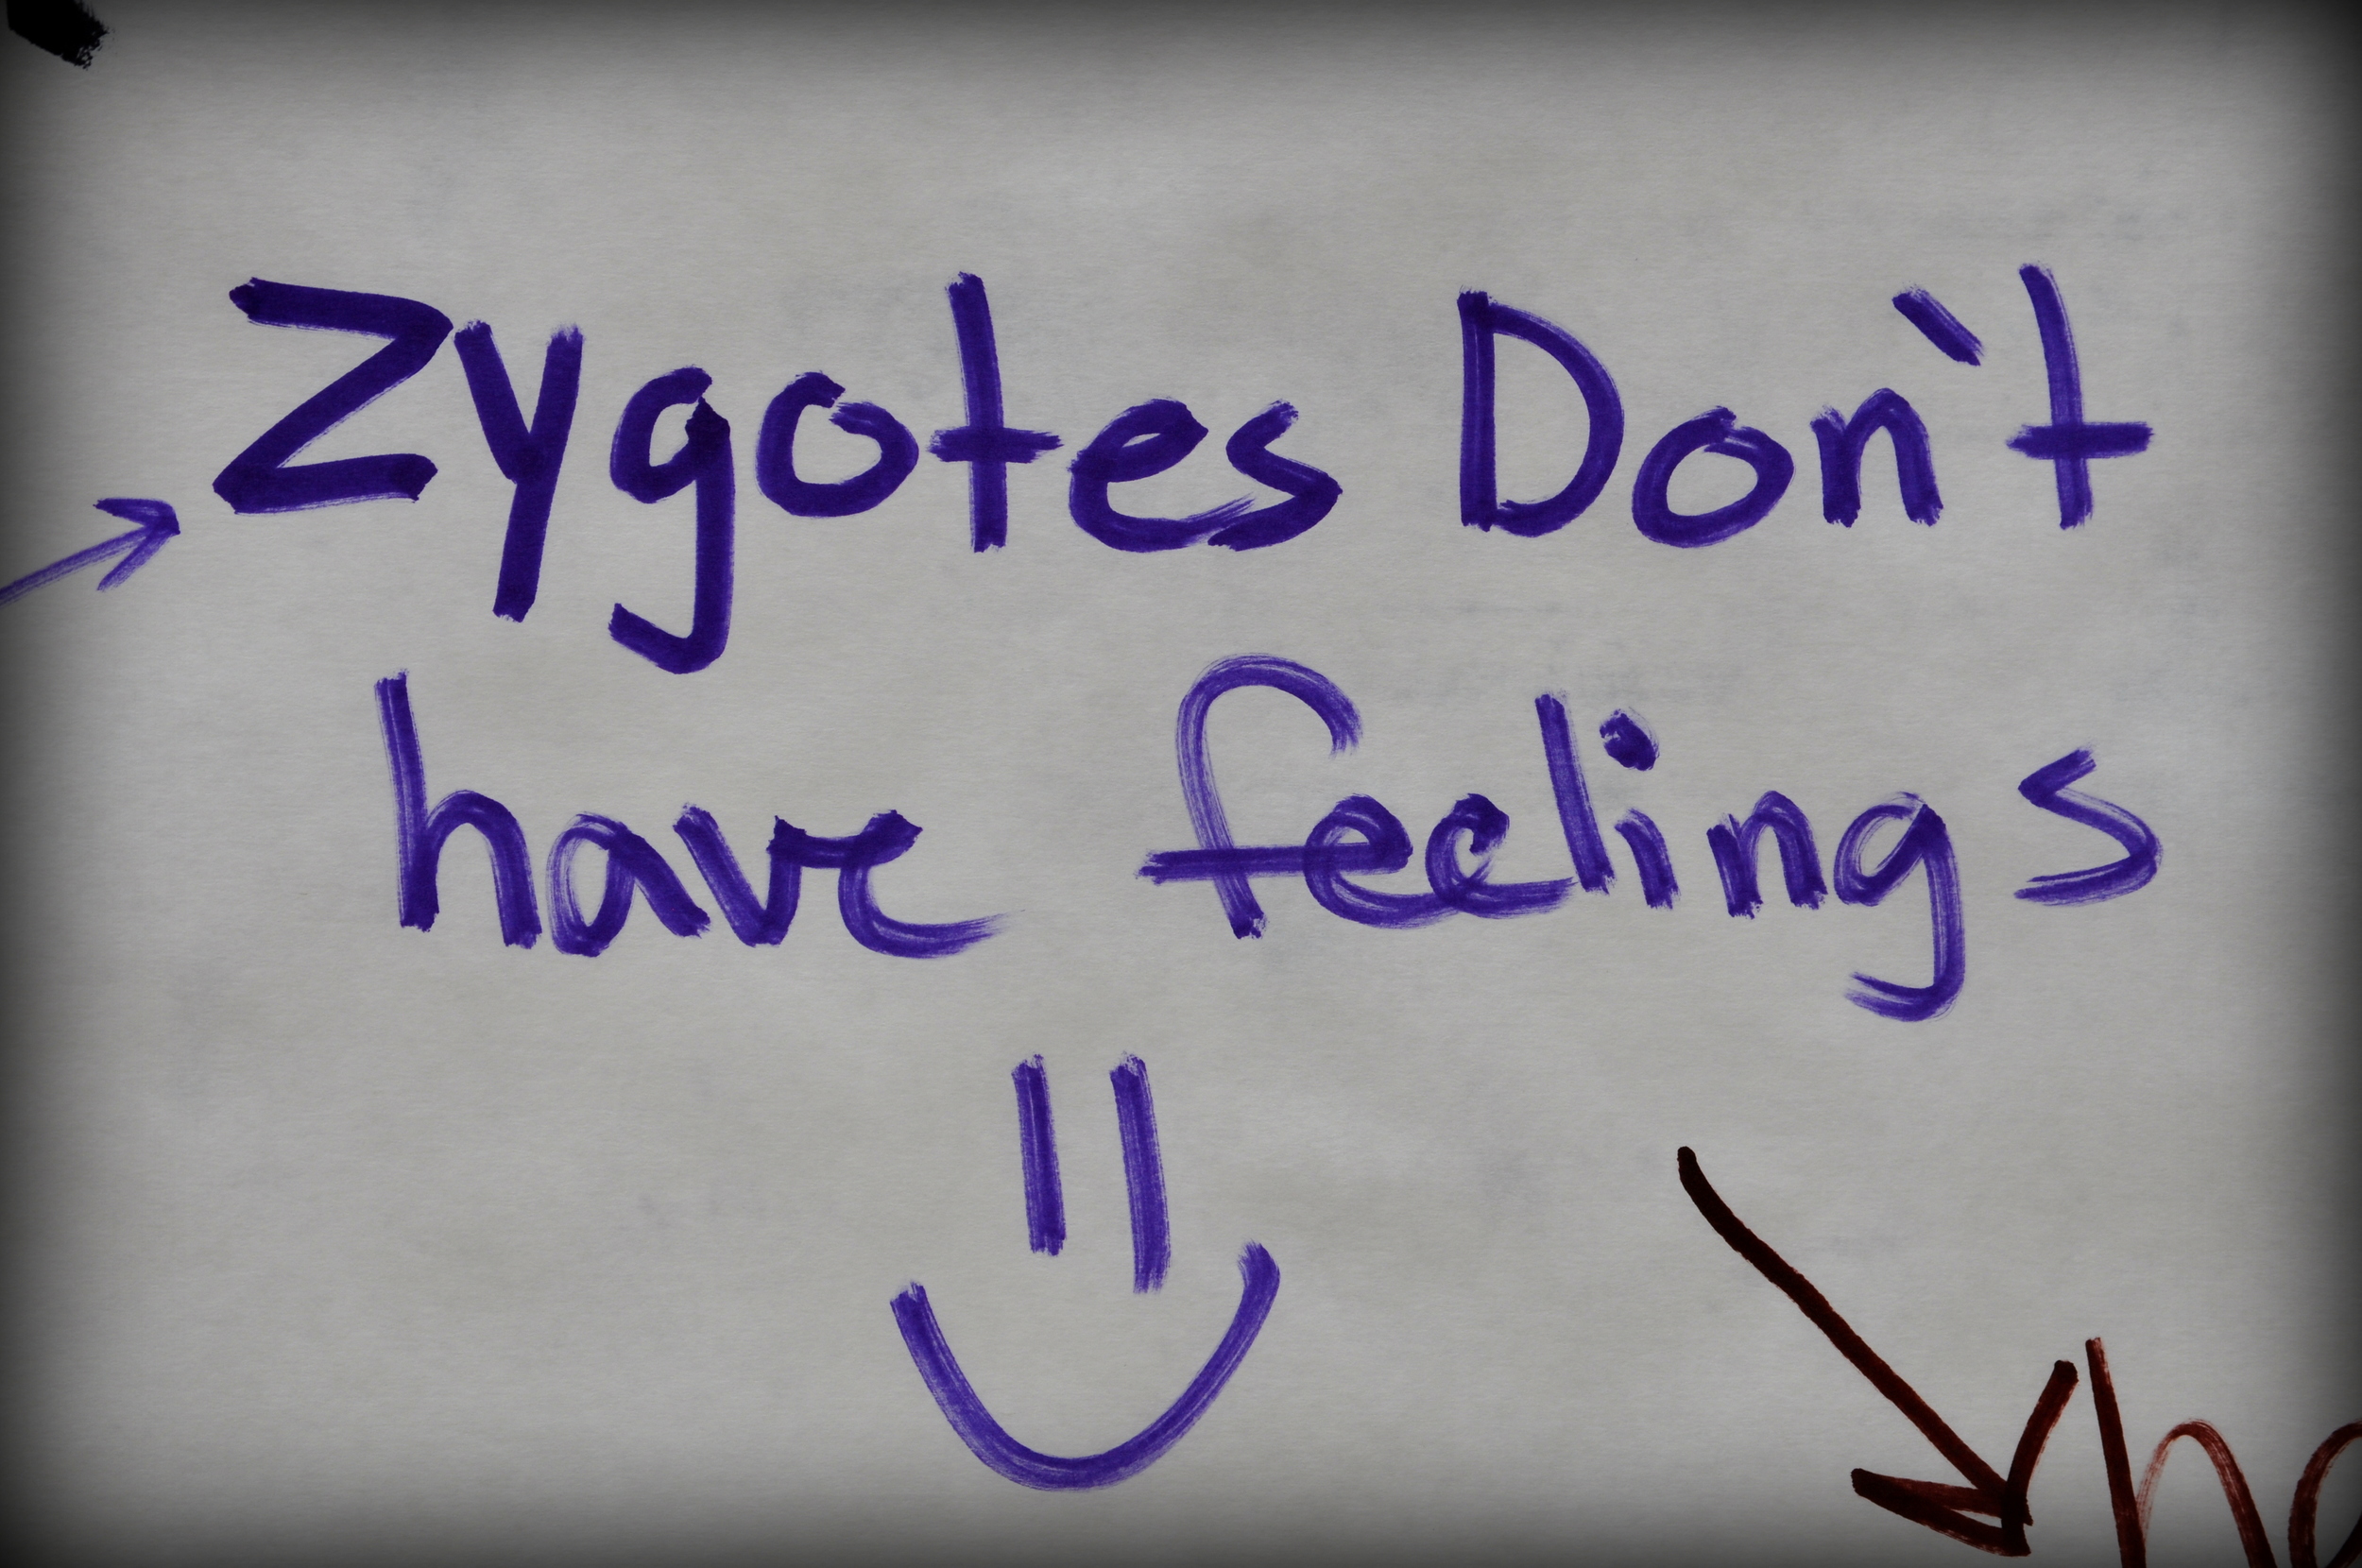 Zygotes Don't
have feelings